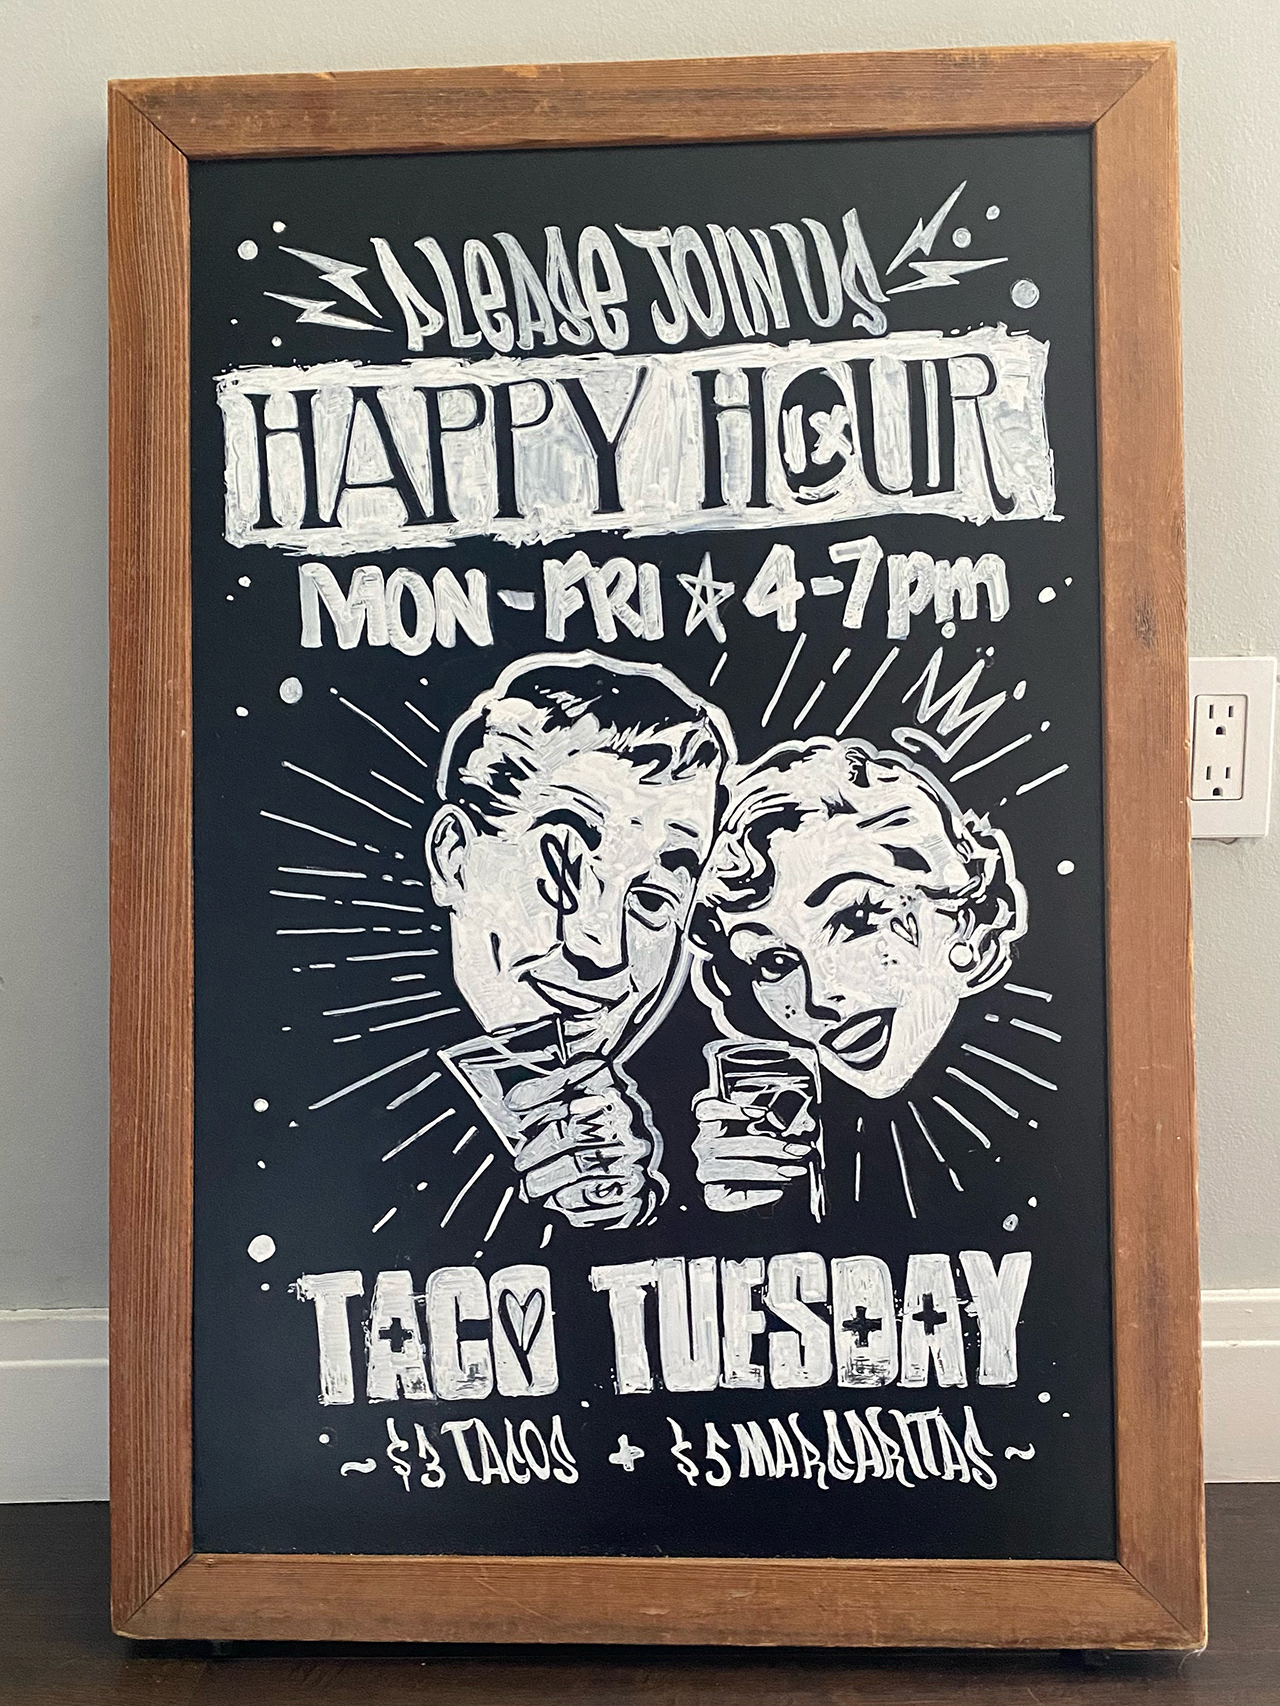 PLEASE JOIN US
HAPPY HOUR
MON-FRI ☆ 4-7pm
TACO TUESDAY
~ $3 TACOS + $5 MARGARITAS ~